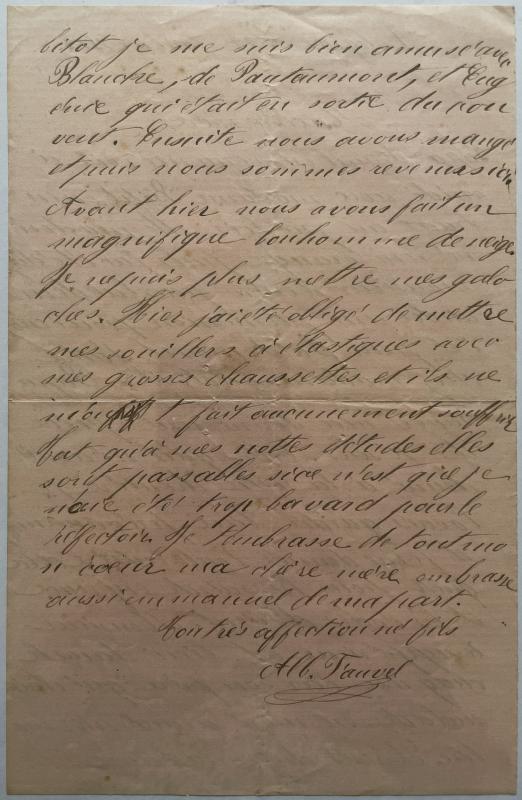 bitot je me suis bien amusé avec
Blanche, de Pantaumont, et Eug
énie qui était en sortie du cou
vent. Ensuite nous avons mangé
et puis nous sommes revenus ici.
Avant hier nous avons fait un
magnifique bonhomme de neige.
Je ne puis plus mettre mes galo
ches. Hier j'ai été obligé de mettre
mes souilliers à élastiques avec
mes grosses chaussettes et ils ne
m'ont fait aucunement souffrir
Tout qu'à mes nottes d'études elles
sont passables si ce n'est que je
n'aie été trop bavard pour le
réfectoir. Je t'embrasse de tout mo
n cœur ma chère mère embrasse
aussi emmanuel de ma part.
Ton très affectionné fils
Alb. Fauvel